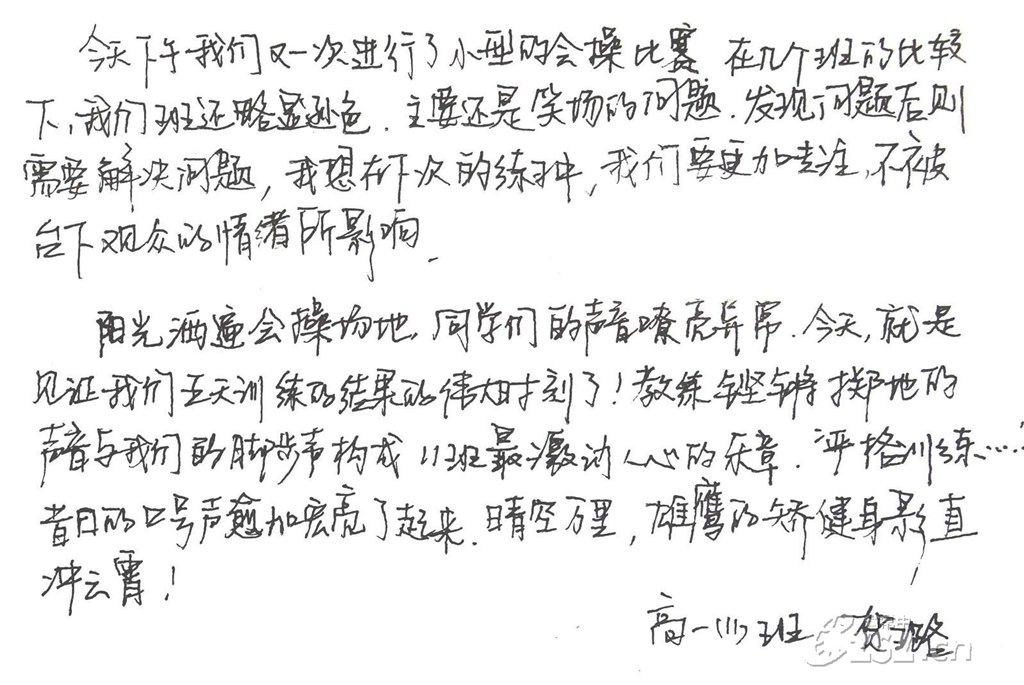 今天下午我们又一次进行了小型的会操比赛 在几个班的比较
下,我们班还略显逊色.主要还是笑场的问题.发现问题后则
需要解决问题,我想在下次的练习中,我们要更加专注,不被
台下观众的情绪所影响.
阳光洒遍会操场地,同学们的声音嘹亮异常.今天,就是
见证我们五天训练的结果的伟大时刻了!教练铿锵掷地的
声音与我们的脚步声构成11班最激动人心的乐章.严格训练……
昔日的口号声愈加宏亮了起来.晴空万里,雄鹰的矫健身影直
冲云霄!
高一(11)班